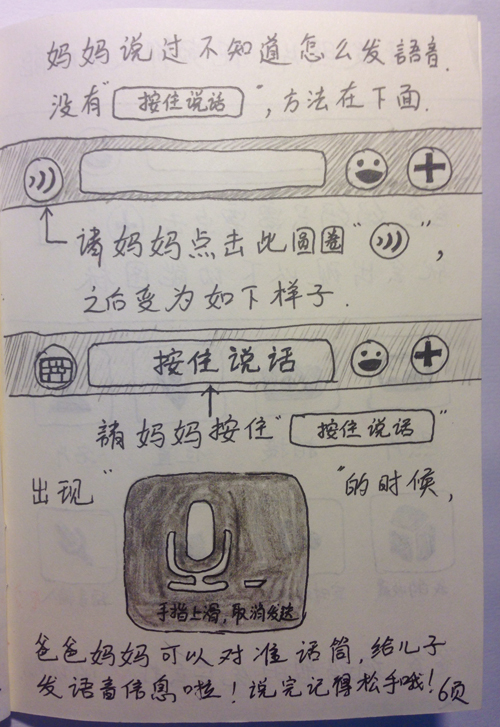 妈妈说过不知道怎么发語音.
没有"按住说话",方法在下面.
請妈妈点击此圆圈"",
之后变为如下样子.
按住说话
請妈妈按住"按住说话"
出现""的时候,
手指上滑,取消发送
爸爸妈妈可以对准话筒,给儿子
发语音信息啦!说完记得松手哦!
6页